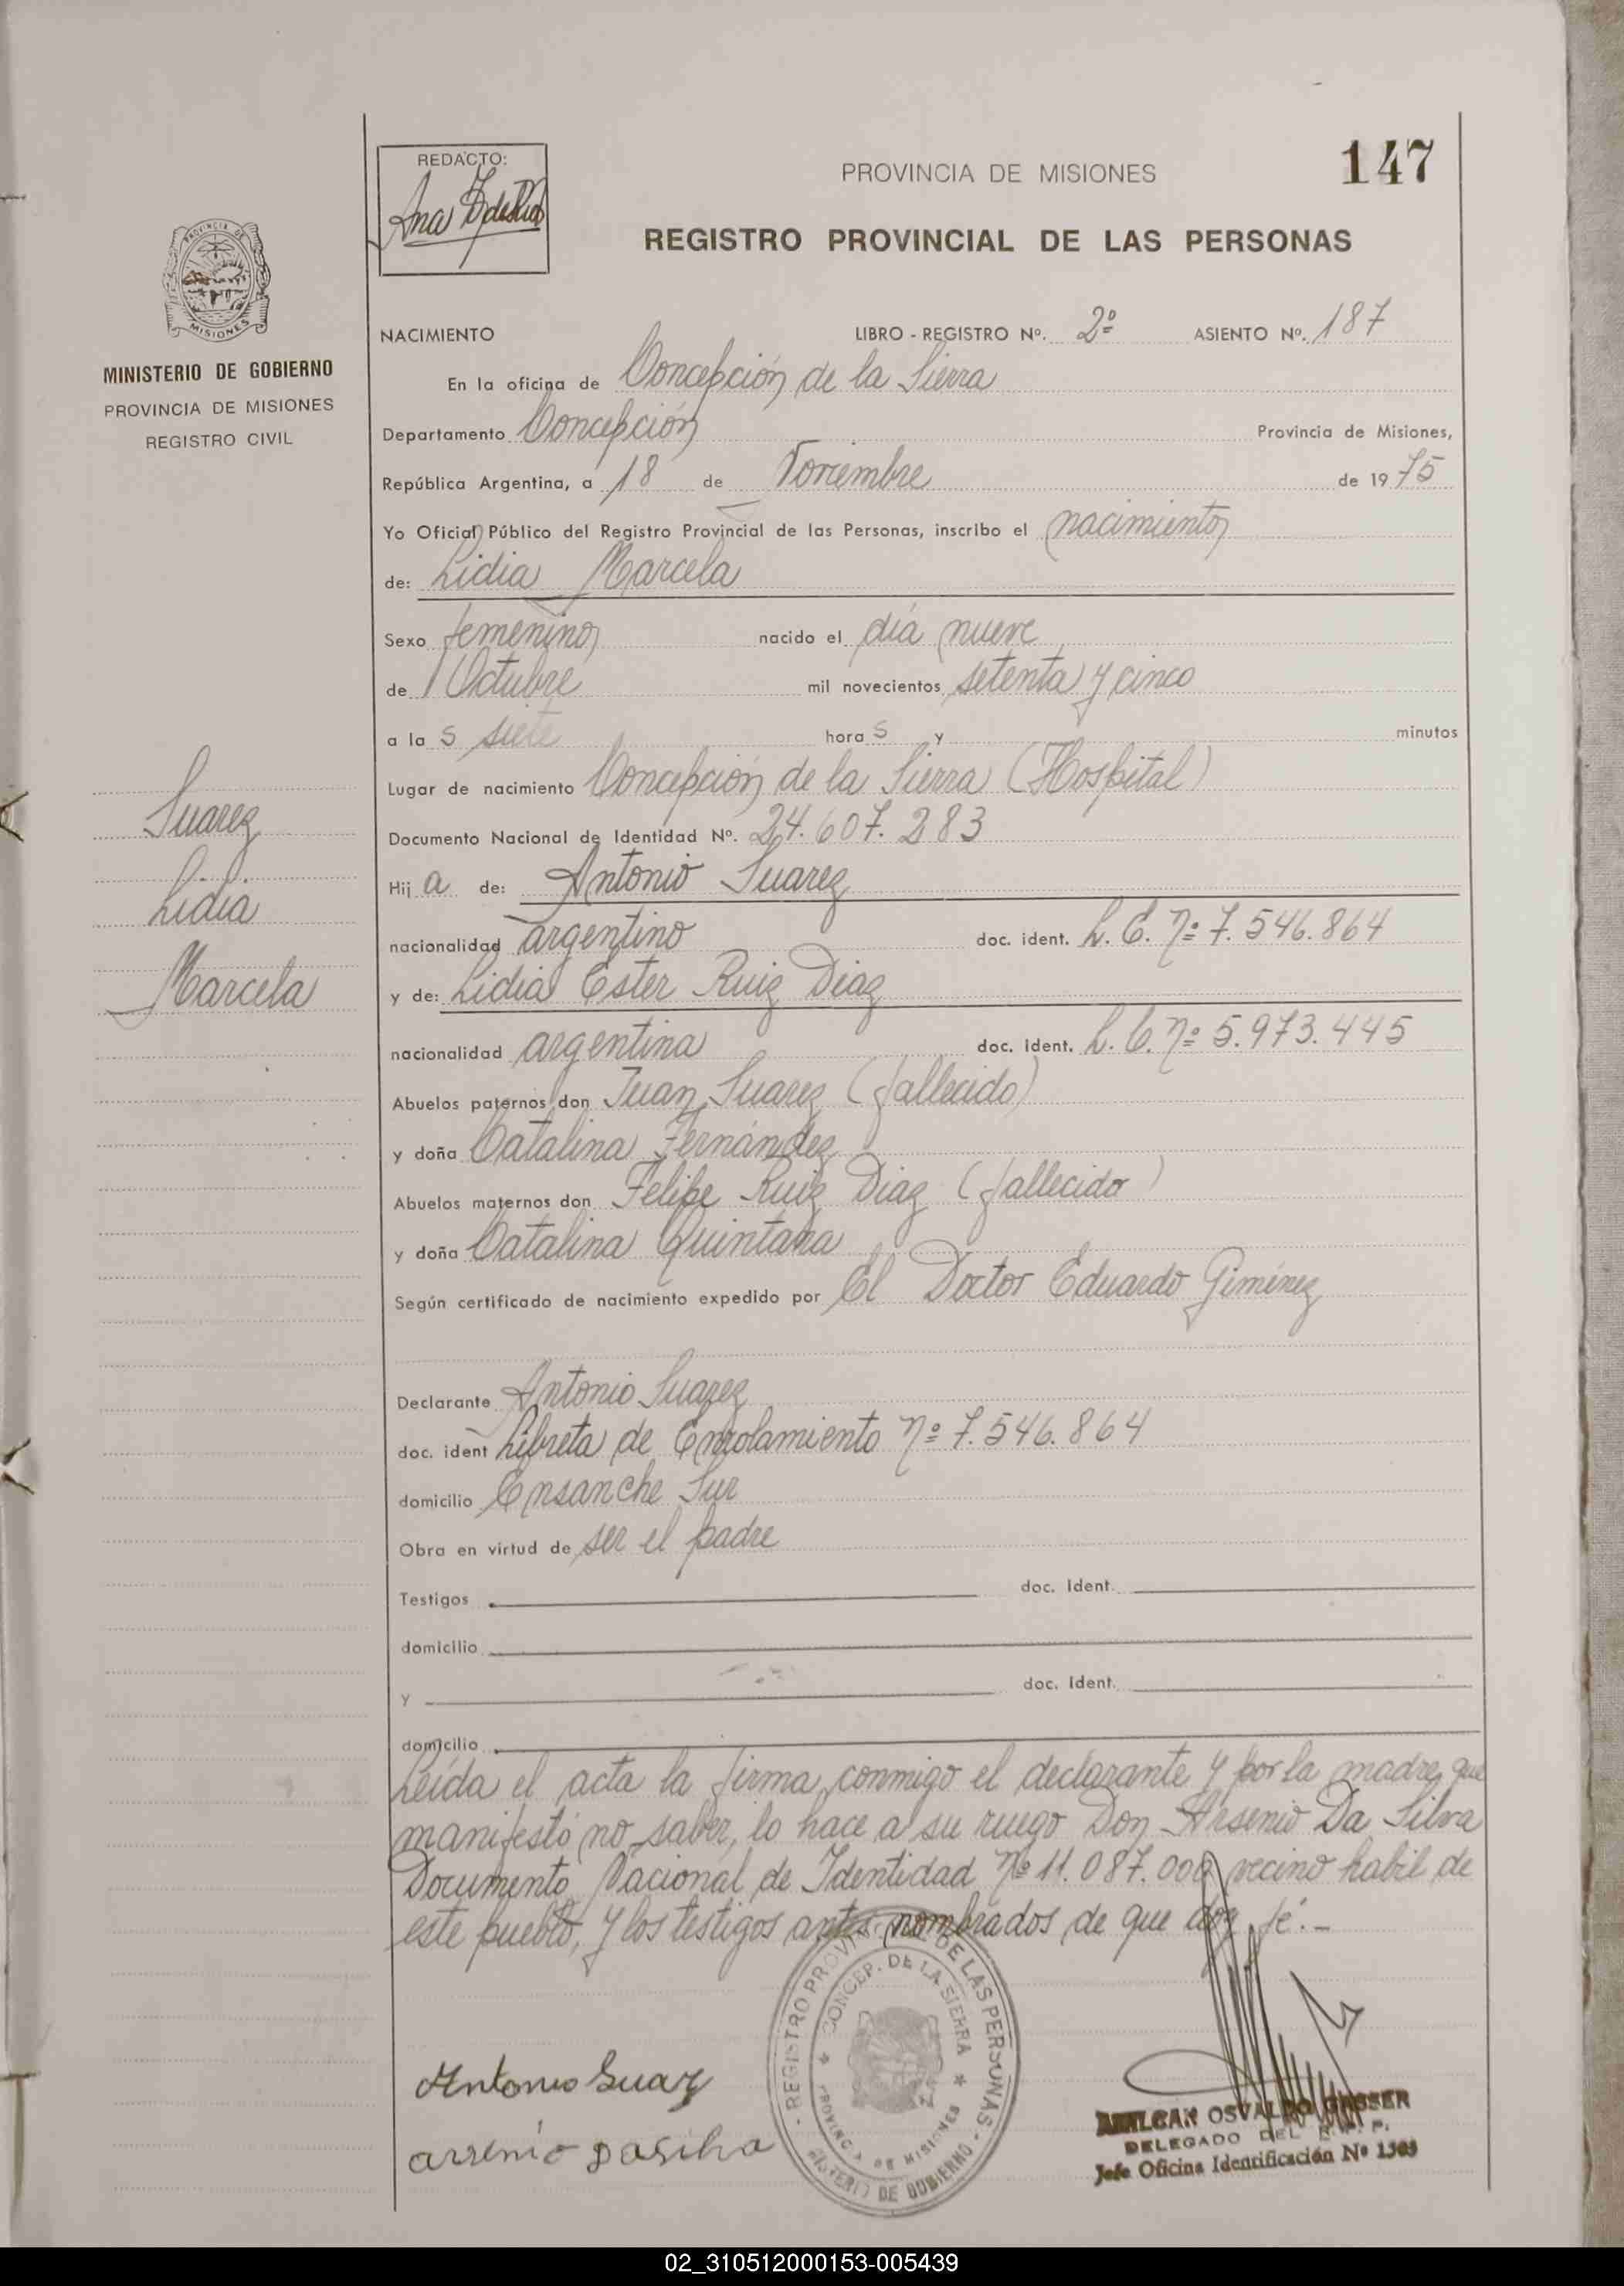 REDACTO:
Ana
PROVINCIA DE MISIONES
147
REGISTRO PROVINCIAL DE LAS PERSONAS
PROVINCIA DE
MISIONES
MINISTERIO DE GOBIERNO
PROVINCIA DE MISIONES
REGISTRO CIVIL
NACIMIENTO LIBRO - REGISTRO Nº. 2º ASIENTO Nº. 187
En la oficina de Concepción de la Sierra
Departamento Concepción Provincia de Misiones,
República Argentina, a 18 de Noviembre de 1975
Yo Oficial Público del Registro Provincial de las Personas, inscribo el nacimiento
de: Lidia Marcela
Sexo femenino nacido el día nueve
de Octubre mil novecientos setenta y cinco
a la s siete hora s y minutos
Lugar de nacimiento Concepción de la Sierra (Hospital)
Documento Nacional de Identidad Nº. 24.607.283
Suarez
Lidia
Marcela
Hij a de: Antonio Suarez
nacionalidad argentino doc. ident. L. E. Nº 7.546.864
y de: Lidia Ester Ruiz Diaz
nacionalidad argentina doc. ident. L. C. Nº 5.973.445
Abuelos paternos don Juan Suarez (fallecido)
y doña Catalina Fernández
Abuelos maternos don Felipe Ruiz Diaz (fallecido)
y doña Catalina Quintana
Según certificado de nacimiento expedido por El Doctor Eduardo Giménez
Declarante Antonio Suarez
doc. ident Libreta de Enrolamiento Nº 7.546.864
domicilio Ensanche Sur
Obra en virtud de ser el padre
Testigos doc. Ident.
domicilio
y doc. Ident.
domicilio
Leída el acta la firma conmigo el declarante y por la madre que
manifestó no saber, lo hace a su ruego Don Arsenio Da Silva
Documento Nacional de Identidad Nº 11.087.000 vecino habil de
este pueblo, y los testigos antes nombrados de que doy fé.-
REGISTRO PROVINCIAL DE LAS PERSONAS
CONCEP. DE LA SIERRA
PROVINCIA DE MISIONES
MINISTERIO DE GOBIERNO
Antonio Suarz
arsenio dasilva
AMILCAR OSVALDO GASSER
DELEGADO DEL R. P. P.
Jefe Oficina Identificación Nº 1303
02_310512000153-005439